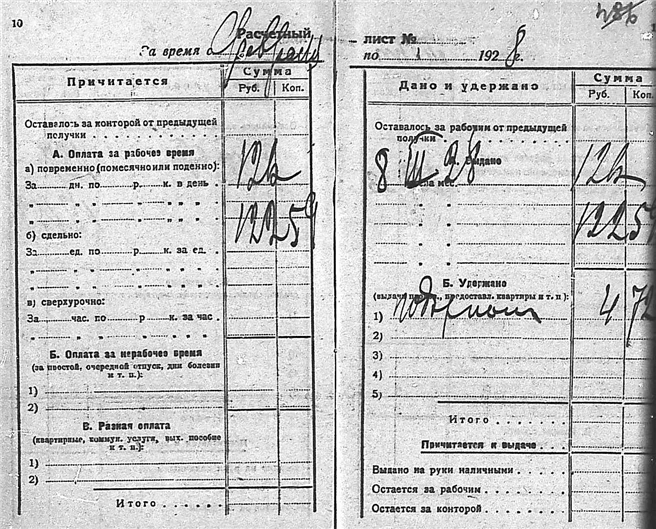 10
Расчетный
За время с Февраль
Причитается
Сумма
Руб. Коп.
Оставалось за конторой от предыдущей
получки
А. Оплата за рабочее время
а) повременно (помесячно или поденно):
За дн. по р. к. в день
б) сдельно:
За ед. по р. к. за ед.
в) сверхурочно:
За час. по р. к. за час.
Б. Оплата за нерабочее время
(за простой, очередной отпуск, дни болезни
и т. п.):
1)
2)
В. Разная оплата
(квартирные, коммун. услуги, вых. пособие
и т. п.):
1)
2)
Итого
122 59
лист №
по 1928 г.
Дано и удержано
Сумма
Руб. Коп.
Оставалось за рабочим от предыдущей
получки
А. Выдано
8 III 28
122 59
Б. Удержано
(выдачи предоставл. квартиры и т. п.):
1) 4 72
2)
3)
4)
5)
Итого
Причитается к выдаче
Выдано на руки наличными
Остается за рабочим
Остается за конторой